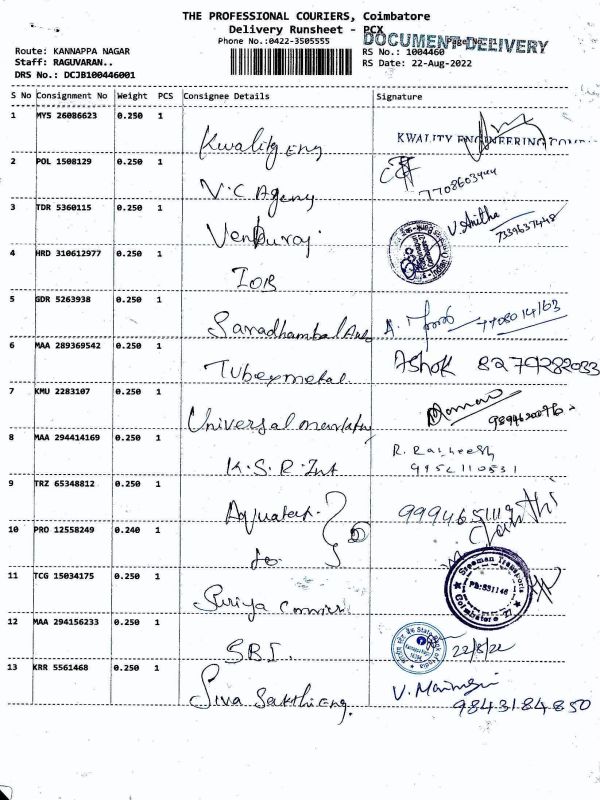 THE PROFESSIONAL COURIERS, Coimbatore
Delivery Runsheet - PCX
DOCUMENT DELIVERY
Phone No.:0422-3505555
Page No.:1
Route: KANNAPPA NAGAR
RS No.: 1004460
Staff: RAGUVARAN..
RS Date: 22-Aug-2022
DRS No.: DCJB100446001
S No Consignment No Weight PCS Consignee Details Signature
1 MYS 26086623 0.250 1
Kwality Eng KWALITY ENGINEERING
2 POL 1508129 0.250 1
V.C Agency 7708603444
3 TDR 5360115 0.250 1
Venduraj V. Anitha 7339637448
4 HRD 310612977 0.250 1
IOB
5 GDR 5263938 0.250 1
Saradhambal A. 7708014163
6 MAA 289369542 0.250 1
Tubexmetal Ashok 8279282033
7 KMU 2283107 0.250 1
Universal
8 MAA 294414169 0.250 1
K.S.R. Int R. Ratheesh
9952110531
9 TRZ 65348812 0.250 1
Aquatech 9994651119
10 PRO 12558249 0.240 1
do
11 TCG 15034175 0.250 1
Suriya Sreeman Transports
Ph:531146
Coimbatore
12 MAA 294156233 0.250 1
SBI. State Bank of India
22/8/22
13 KRR 5561468 0.250 1
Siva Sakthi Eng. V.
9843184850